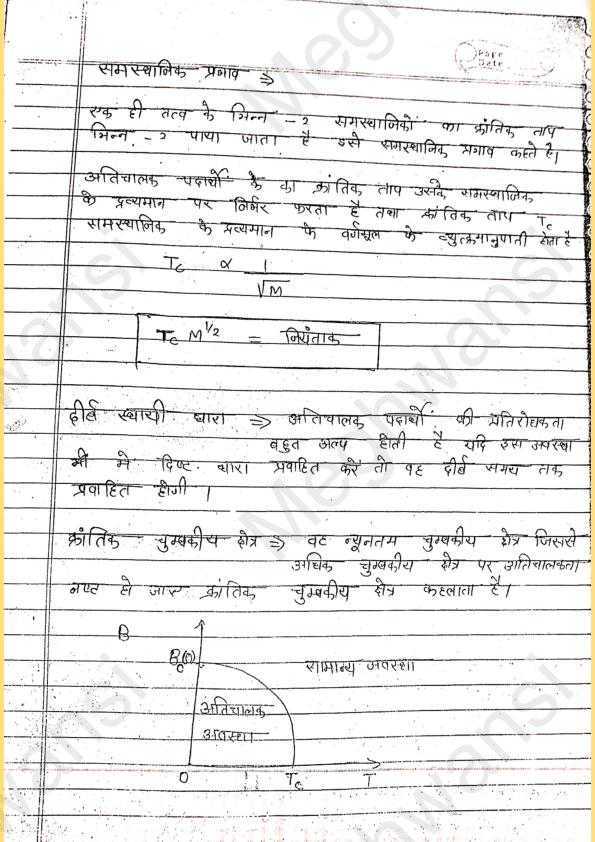 Page
Date
समस्थानिक प्रभाव ⇒
एक ही तत्व के भिन्न-2 समस्थानिकों का क्रांतिक ताप
भिन्न-2 पाया जाता है इसे समस्थानिक प्रभाव कहते है।
अतिचालक पदार्थो के का क्रांतिक ताप उसके समस्थानिक
के द्रव्यमान पर निर्भर करता है तथा क्रांतिक ताप Tc
समस्थानिक के द्रव्यमान के वर्गमूल के व्युत्क्रमानुपाती होता है
Tc ∝ 1/√M
Tc M^1/2 = नियंताक
दीर्घ स्थायी धारा ⇒ अतिचालक पदार्थो की प्रतिरोधकता
बहुत अल्प होती है यदि इस अवस्था
में दिष्ट धारा प्रवाहित करें तो वह दीर्घ समय तक
प्रवाहित होगी।
क्रांतिक चुम्बकीय क्षेत्र ⇒ वह न्यूनतम चुम्बकीय क्षेत्र जिससे
अधिक चुम्बकीय क्षेत्र पर अतिचालकता
नष्ट हो जाए क्रांतिक चुम्बकीय क्षेत्र कहलाता है।
B
Bc(0)
सामान्य अवस्था
अतिचालक
अवस्था
0 Tc T
Meghwansi